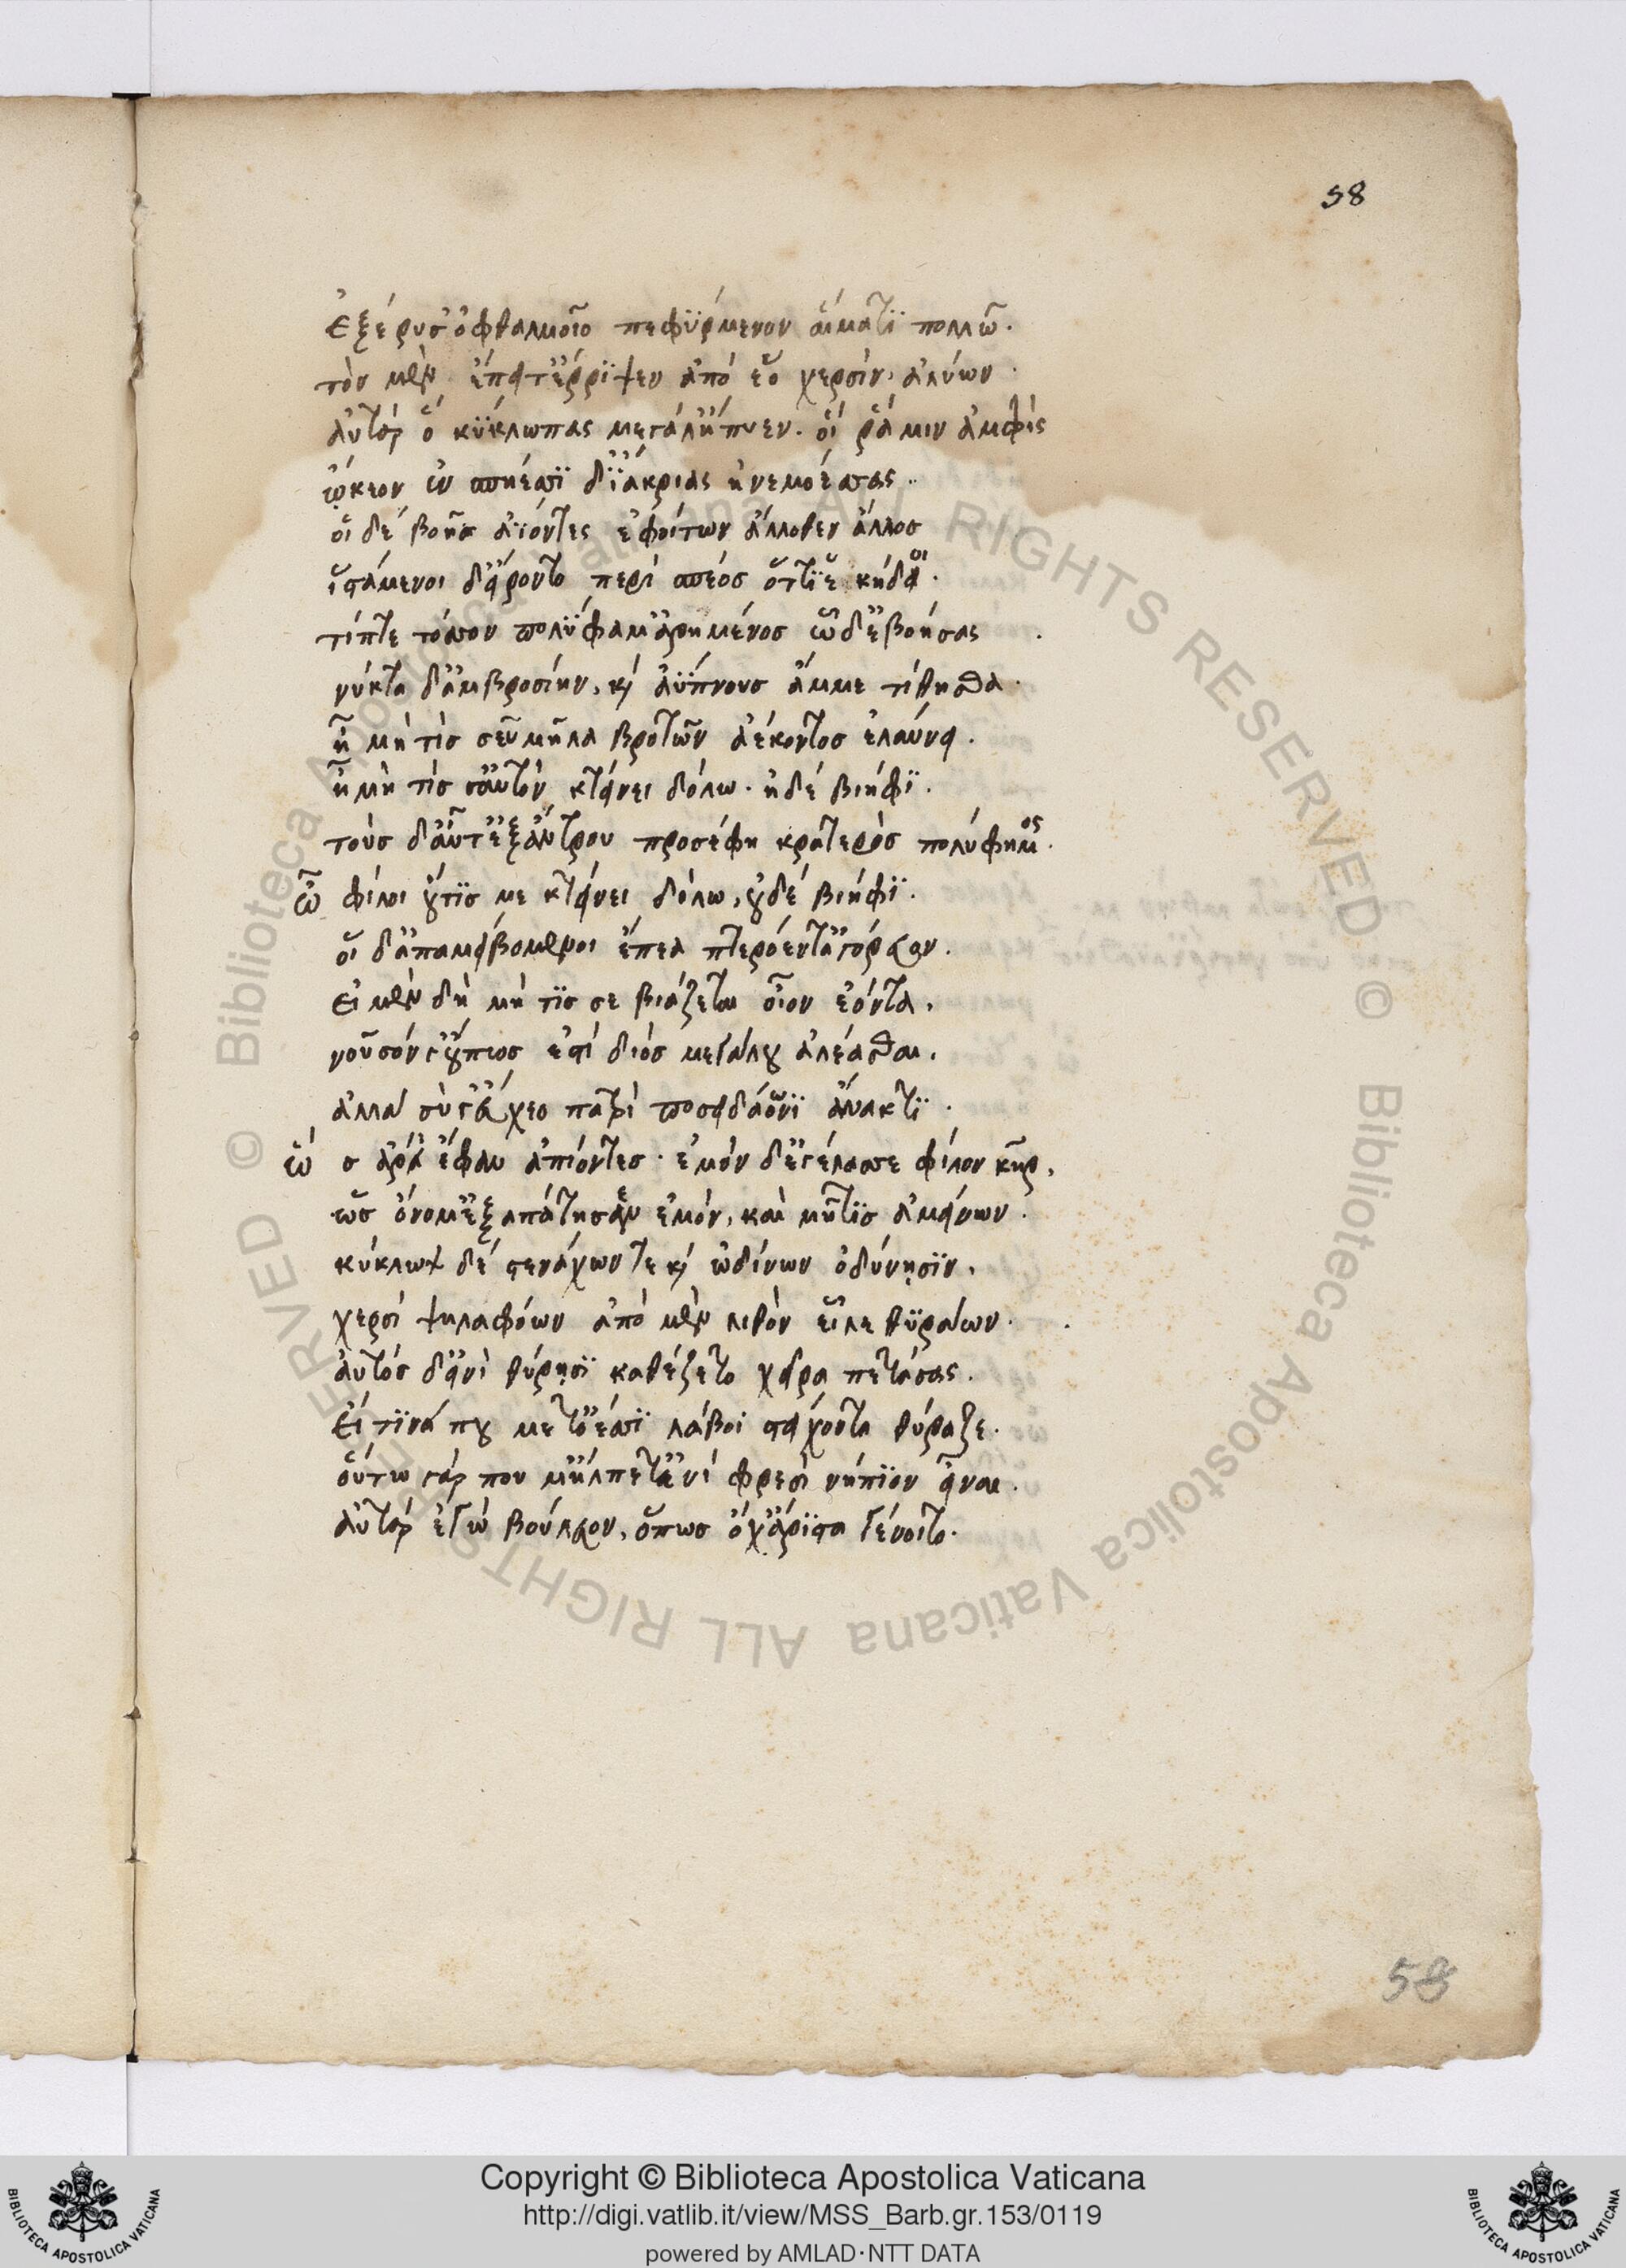 58
ἐξέρυσ' ὀφθαλμοῖο πεφϋρμένον αἵματϊ πολλῶ.
τὸν μὲν ἔπειτ' ἔρριψεν ἀπὸ ἕο χερσὶν, ἀλύων.
αὐτὰρ ὃ κύκλωπας μεγάλ' ἤπυεν. οἵ ῥά μιν ἀμφὶς
ᾤκεον ἐν σπήεσσϊ δϊ' ἄκριας ἠνεμοέσσας.
οἳ δὲ βοῆσ ἀΐοντες ἐφοίτων ἄλλοθεν ἄλλοσ
ἱστάμενοι δ' εἴροντο περὶ σπέοσ ὅττϊ ἑ κήδοι.
τίπτε τόσσον πολύφημ' ἀρημένοσ ὧδ' ἐβόησας
νύκτα δ' ἀμβροσίην, κὶ ἀΰπνουσ ἄμμε τίθησθα.
ἦ μή τίσ σεῦ μῆλα βροτῶν ἀέκοντοσ ἐλαύνει.
ἦ μή τίσ σ' αὐτὸν κτείνει δόλω. ἠδὲ βιήφϊ.
τοὺσ δ' αὖτ' ἐξ ἄντρου προσέφη κρατερὸσ πολύφημος.
ὦ φίλοι οὔτϊσ με κτείνει δόλω, οὐδὲ βιήφϊ.
οἳ δ' ἀπαμειβόμενοι ἔπεα πτερόεντ' ἀγόρευον.
εἰ μὲν δὴ μή τϊσ σε βιάζεται οἶον ἐόντα,
νοῦσόν γ' οὔπωσ ἐστὶ διὸσ μεγάλου ἀλέασθαι.
ἀλλὰ σύ γ' εὔχεο πατρὶ ποσειδάωνϊ ἄνακτϊ.
ὣ σ ἄρ' ἔφαν ἀπιόντεσ. ἐμὸν δ' ἐγέλασσε φίλον κῆρ,
ὡσ ὄνομ' ἐξαπάτησεν ἐμόν, καὶ μῆτϊσ ἀμείνων.
κύκλωψ δὲ στενάχων τε κὶ ὠδίνων ὀδύνῃσϊν,
χερσὶ ψηλαφόων ἀπὸ μὲν λίθον εἷλε θϋράων.
αὐτὸσ δ' εἰνὶ θύρῃσϊ καθέζετο χεῖρα πετάσας.
εἴ τϊνά που μετ' ὀέσσϊ λάβοι στείχοντα θύραζε.
οὕτω γάρ που μ' ἤλπετ' ἐνὶ φρεσὶ νήπϊον εἶναι.
αὐτὰρ ἐγὼ βούλευον, ὅπωσ ὄχ' ἄρϊστα γένοιτο.
58
Copyright © Biblioteca Apostolica Vaticana
http://digi.vatlib.it/view/MSS_Barb.gr.153/0119
powered by AMLAD·NTT DATA